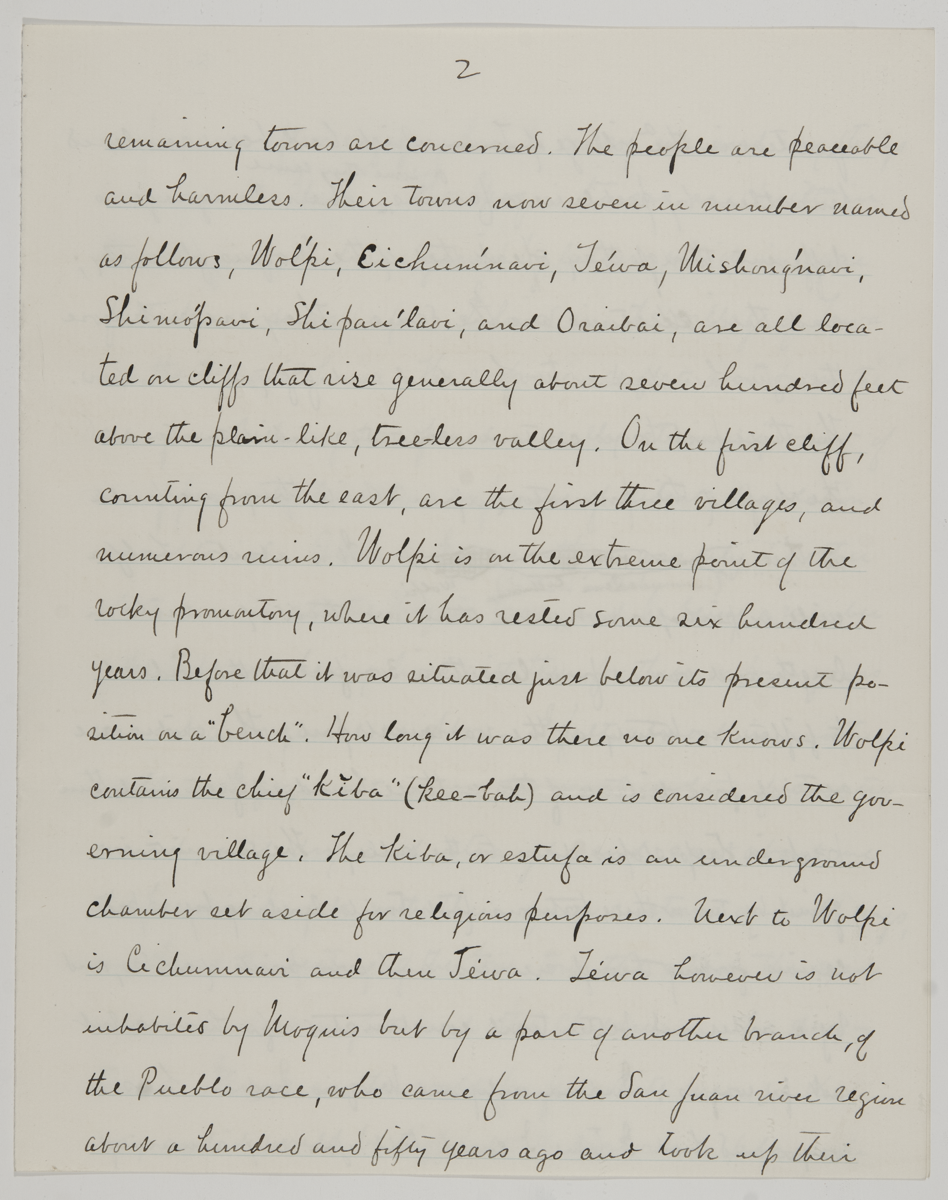 2
remaining towns are concerned. The people are peaceable
and harmless. Their towns now seven in number named
as follows, Wol'pi, Cichum'navi, Té'wa, Mishong'navi,
Shimó'pavi, Shipau'lavi, and Oraibai, are all loca-
ted on cliffs that rise generally about seven hundred feet
above the plain-like, tree-less valley. On the first cliff,
counting from the east, are the first three villages, and
numerous ruins. Wolpi is on the extreme point of the
rocky promontory, where it has rested some six hundred
years. Before that it was situated just below its present po-
sition on a "bench". How long it was there no one knows. Wolpi
contains the chief "kĭba" (kee-bah) and is considered the gov-
erning village. The Kiba, or estufa is an underground
chamber set aside for religious purposes. Next to Wolpi
is Cichumnavi and then Téwa. Téwa however is not
inhabited by Moquis but by a part of another branch, of
the Pueblo race, who came from the San Juan river region
about a hundred and fifty years ago and took up their